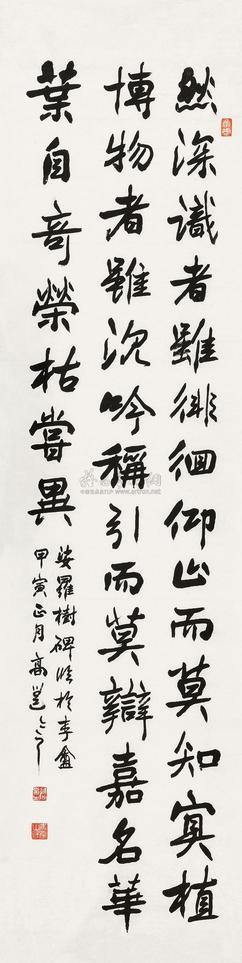 然深識者雖徘徊仰止而莫知冥植
博物者雖沈吟稱引而莫辯嘉名華
葉自奇榮枯嘗異
娑羅樹碑臨於李盦
甲寅正月高邕